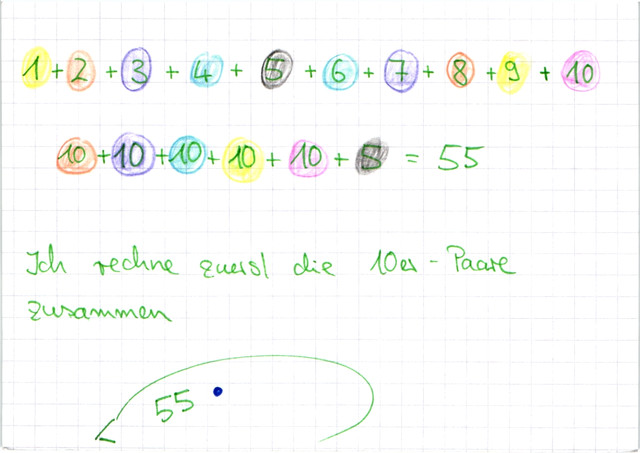 1 + 2 + 3 + 4 + 5 + 6 + 7 + 8 + 9 + 10
10 + 10 + 10 + 10 + 10 + 5 = 55
Ich rechne zuerst die 10er - Paare
zusammen
55